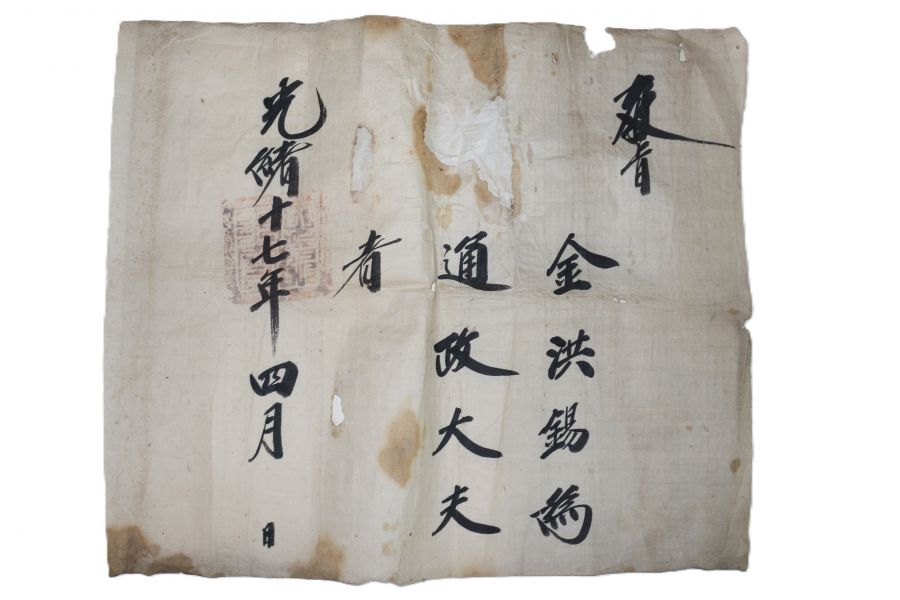 敎旨
金洪錫爲
通政大夫
者
光緖十七年四月 日